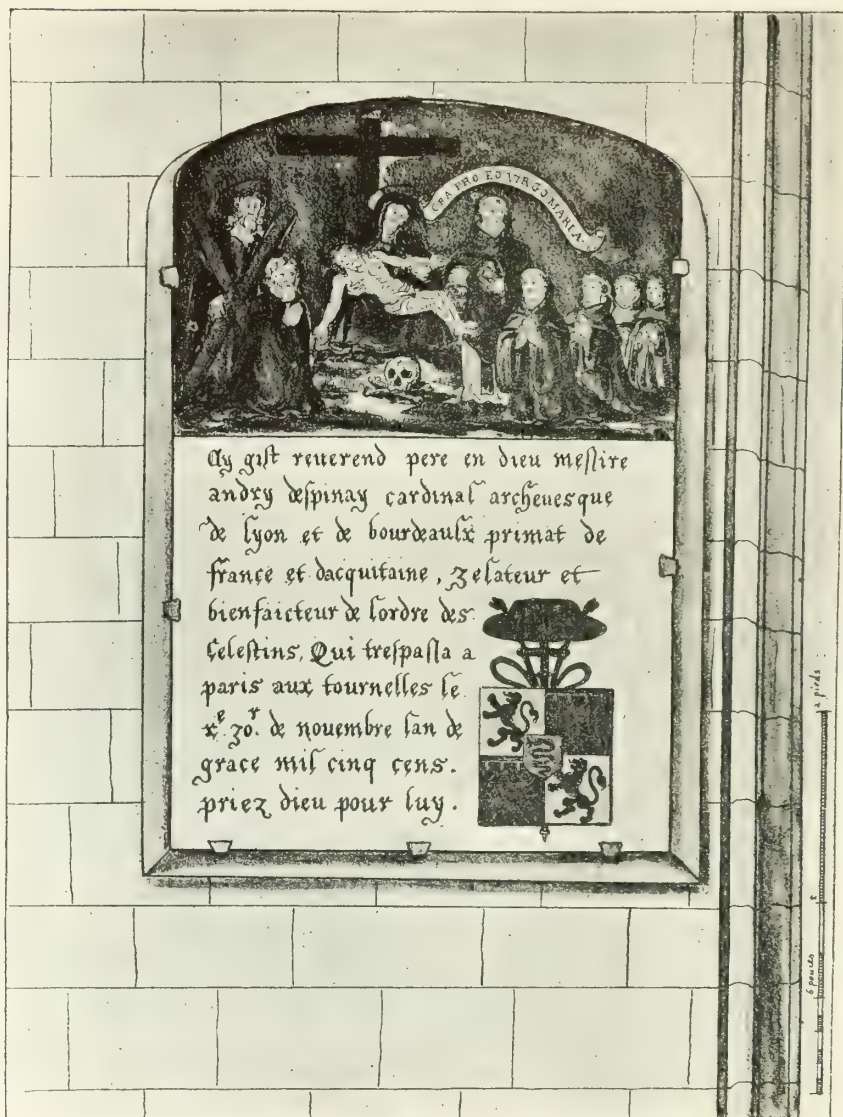 ORA PRO EO VIRGO MARIA.
Cy gist reuerend pere en dieu messire
andry despinay cardinal archeuesque
de lyon et de bourdeaulx primat de
france et dacquitaine, zelateur et
bienfaicteur de lordre des
Celestins, Qui trespassa a
paris aux tournelles le
xe. jor. de nouembre lan de
grace mil cinq cens.
priez dieu pour luy.
2 pieds
6 pouces